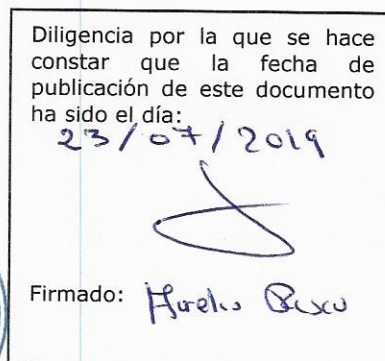 Diligencia por la que se hace
constar que la fecha de
publicación de este documento
ha sido el día:
23/07/2019
Firmado: